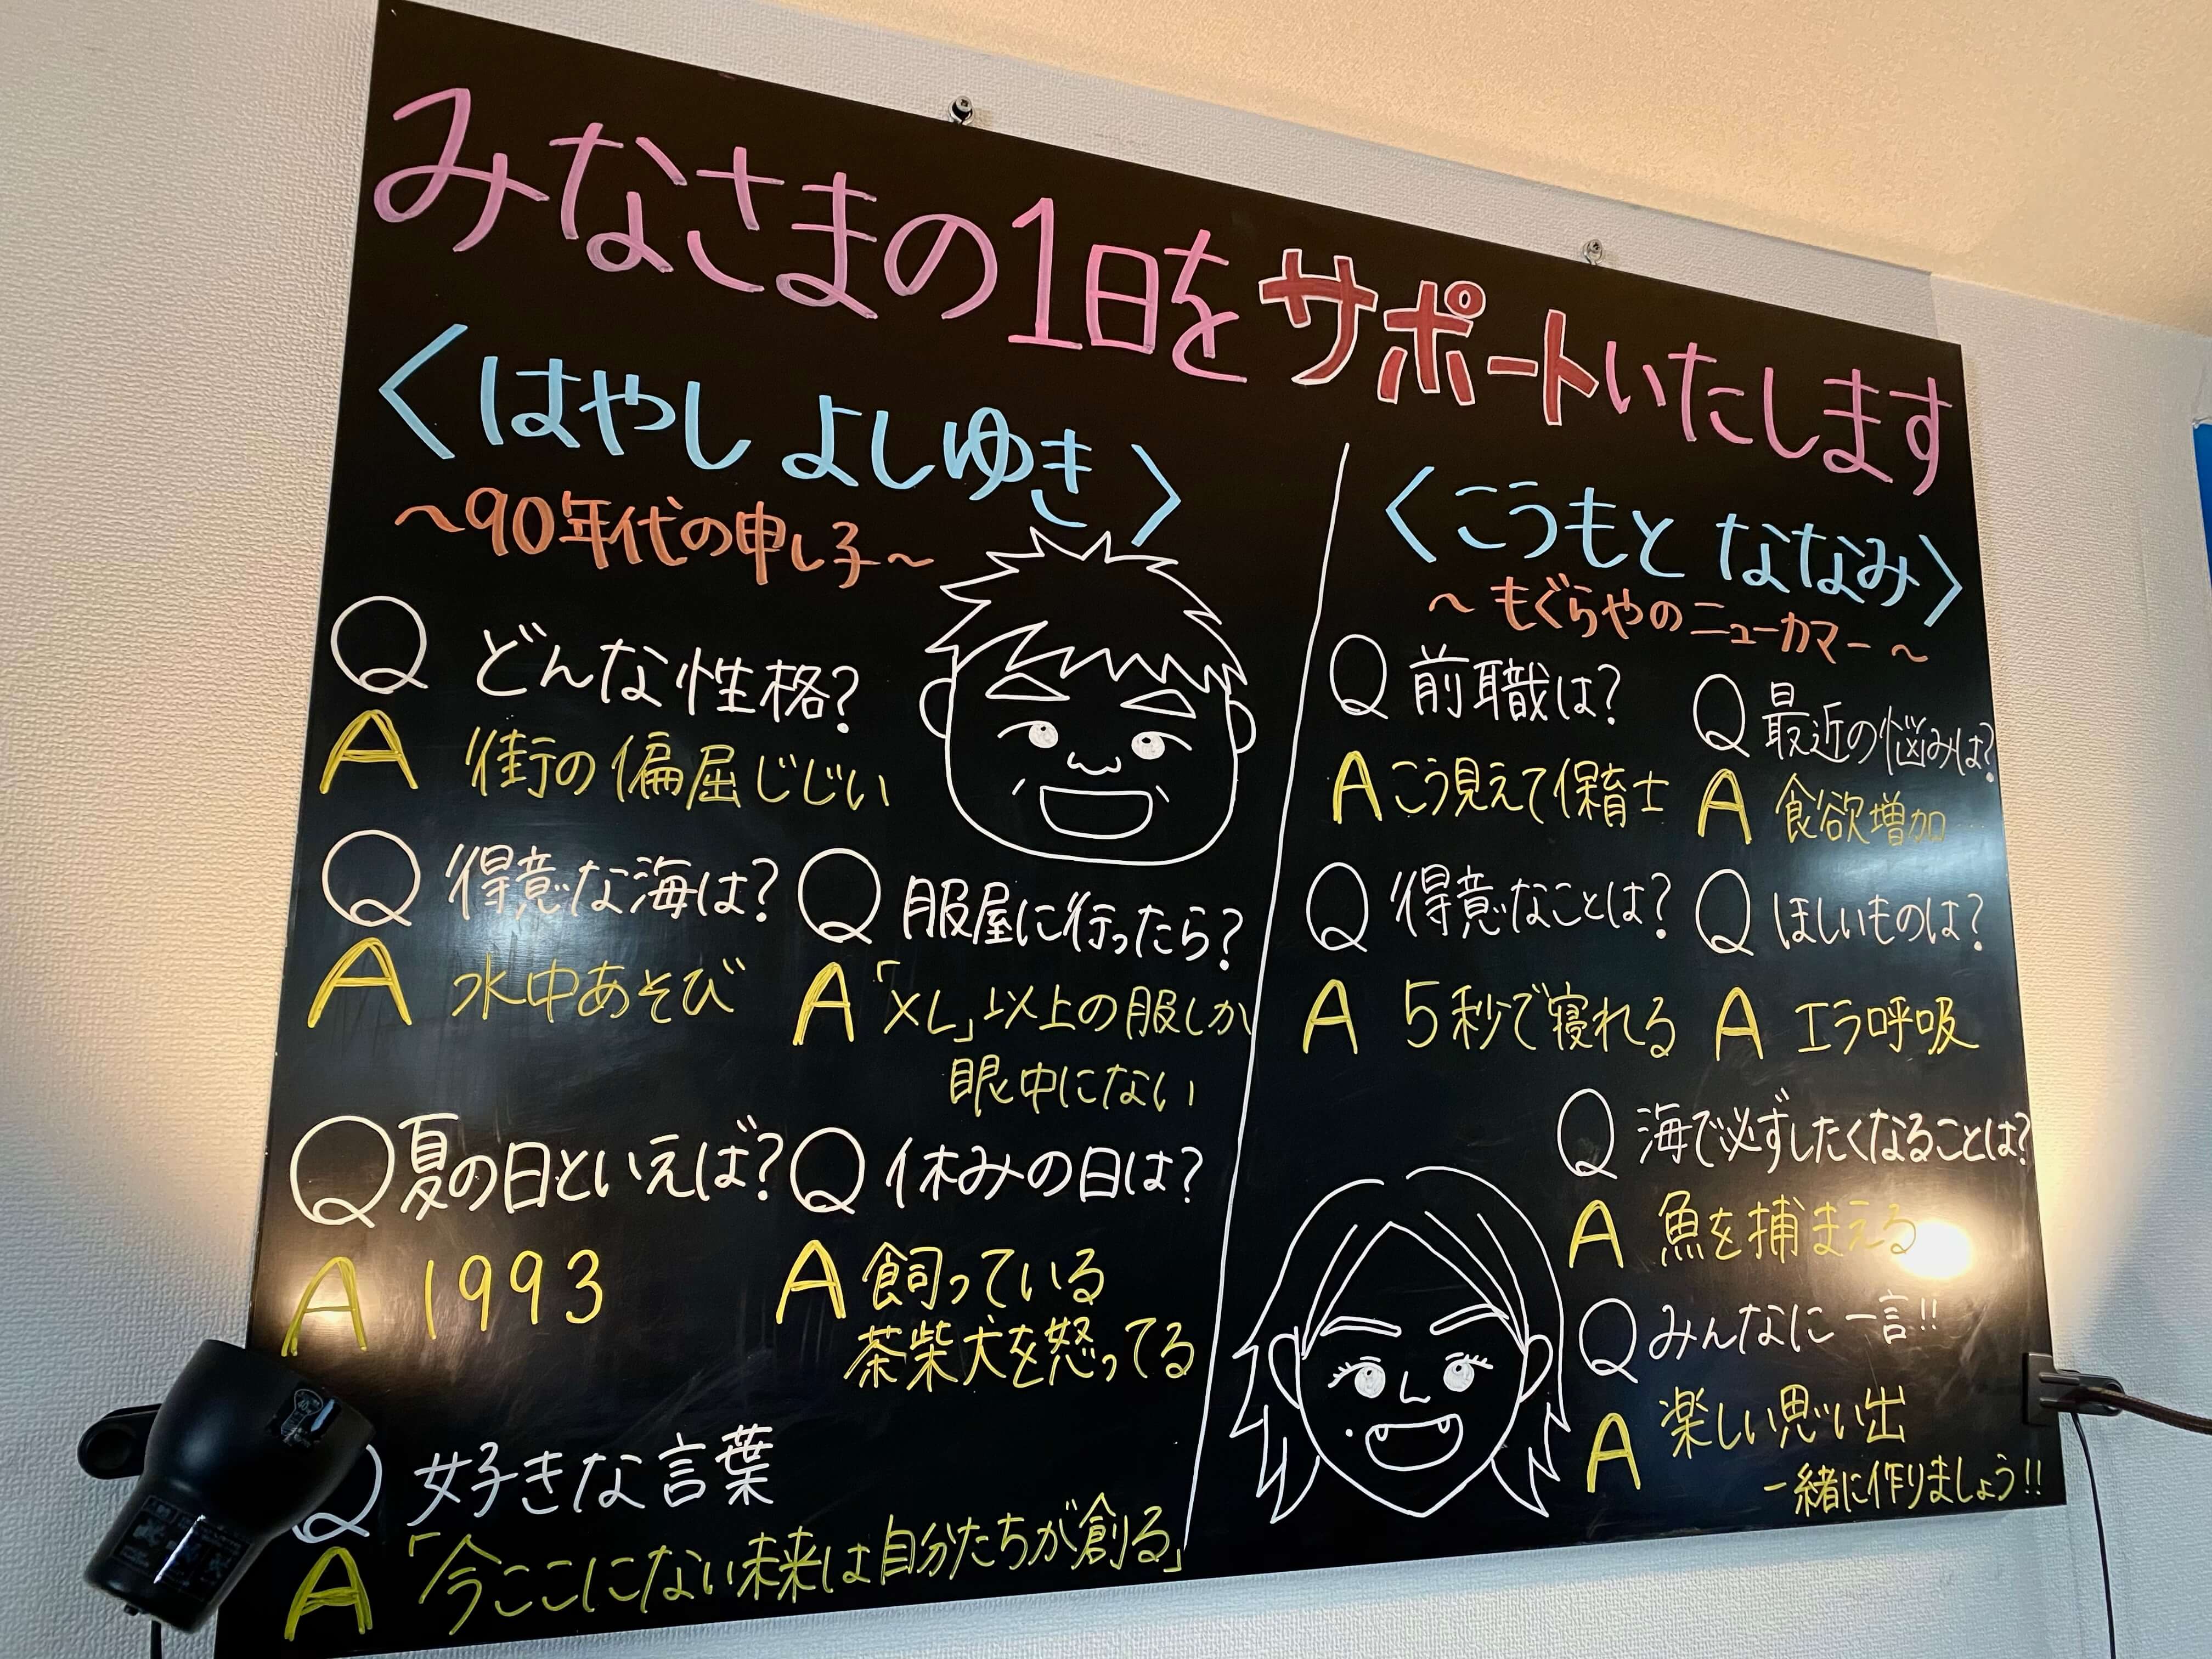 みなさまの1日をサポートいたします
〈はやし よしゆき〉
～90年代の申し子～
Q どんな性格?
A 街の偏屈じじい
Q 得意な海は?
A 水中あそび
Q 服屋に行ったら?
A 「XL」以上の服しか
眼中にない
Q 夏の日といえば?
A 1993
Q 休みの日は?
A 飼っている
茶柴犬を怒ってる
Q 好きな言葉
A 「今ここにない未来は自分たちが創る」
〈こうもと ななみ〉
～もぐらやのニューカマー～
Q 前職は?
A こう見えて保育士
Q 最近の悩みは?
A 食欲増加
Q 得意なことは?
A 5秒で寝れる
Q ほしいものは?
A エラ呼吸
Q 海で必ずしたくなることは?
A 魚を捕まえる
Q みんなに一言!!
A 楽しい思い出
一緒に作りましょう!!